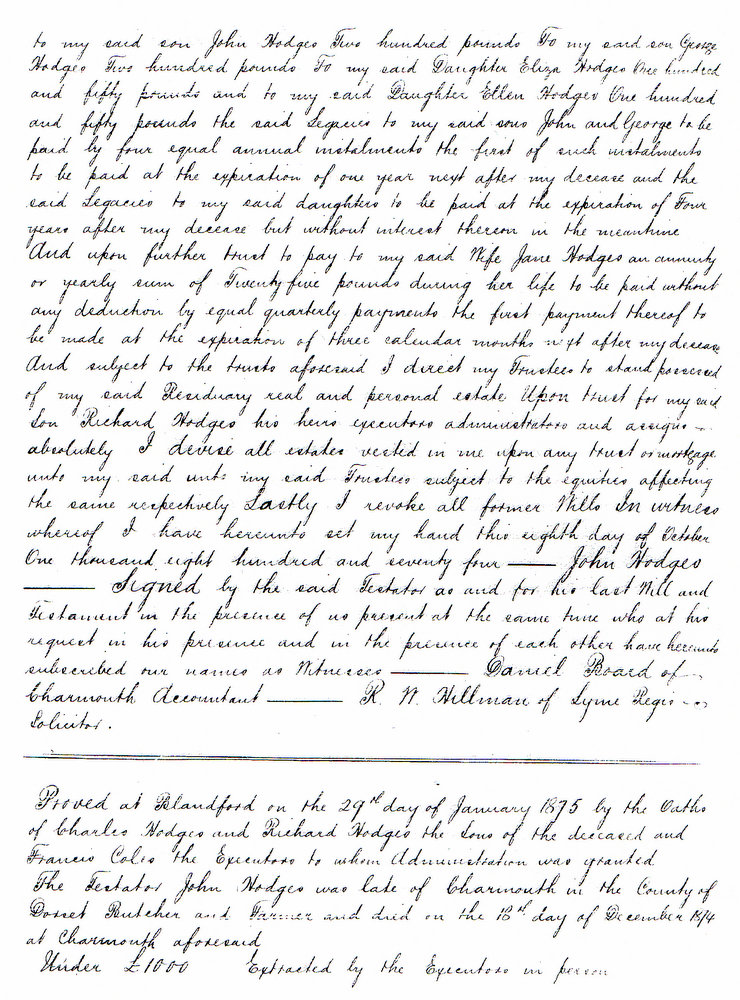 to my said son John Hodges Two hundred pounds To my said son George
Hodges Two hundred pounds To my said Daughter Eliza Hodges One hundred
and fifty pounds and to my said Daughter Ellen Hodges One hundred
and fifty pounds the said Legacies to my said sons John and George to be
paid by four equal annual instalments the first of such instalments
to be paid at the expiration of one year next after my decease and the
said Legacies to my said daughters to be paid at the expiration of Four
years after my decease but without interest thereon in the meantime
And upon further trust to pay to my said Wife Jane Hodges an annuity
or yearly sum of Twenty five pounds during her life to be paid without
any deduction by equal quarterly payments the first payment thereof to
be made at the expiration of three calendar months next after my decease
And subject to the trusts aforesaid I direct my Trustees to stand possessed
of my said Residuary real and personal estate Upon trust for my said
Son Richard Hodges his heirs executors administrators and assigns
absolutely I devise all estates vested in me upon any trust or mortgage
unto my said unto my said Trustees subject to the equities affecting
the same respectively Lastly I revoke all former Wills In witness
whereof I have hereunto set my hand this eighth day of October
One thousand eight hundred and seventy four —— John Hodges
—— Signed by the said Testator as and for his last Will and
Testament in the presence of us present at the same time who at his
request in his presence and in the presence of each other have hereunto
subscribed our names as Witnesses —— Daniel Board of
Charmouth Accountant —— R. W. Hillman of Lyme Regis
Solicitor.
Proved at Blandford on the 29th day of January 1875 by the Oaths
of Charles Hodges and Richard Hodges the Sons of the deceased and
Francis Coles the Executors to whom Administration was granted
The Testator John Hodges was late of Charmouth in the County of
Dorset Butcher and Farmer and died on the 18th day of December 1874
at Charmouth aforesaid
Under £1000 Extracted by the Executors in person